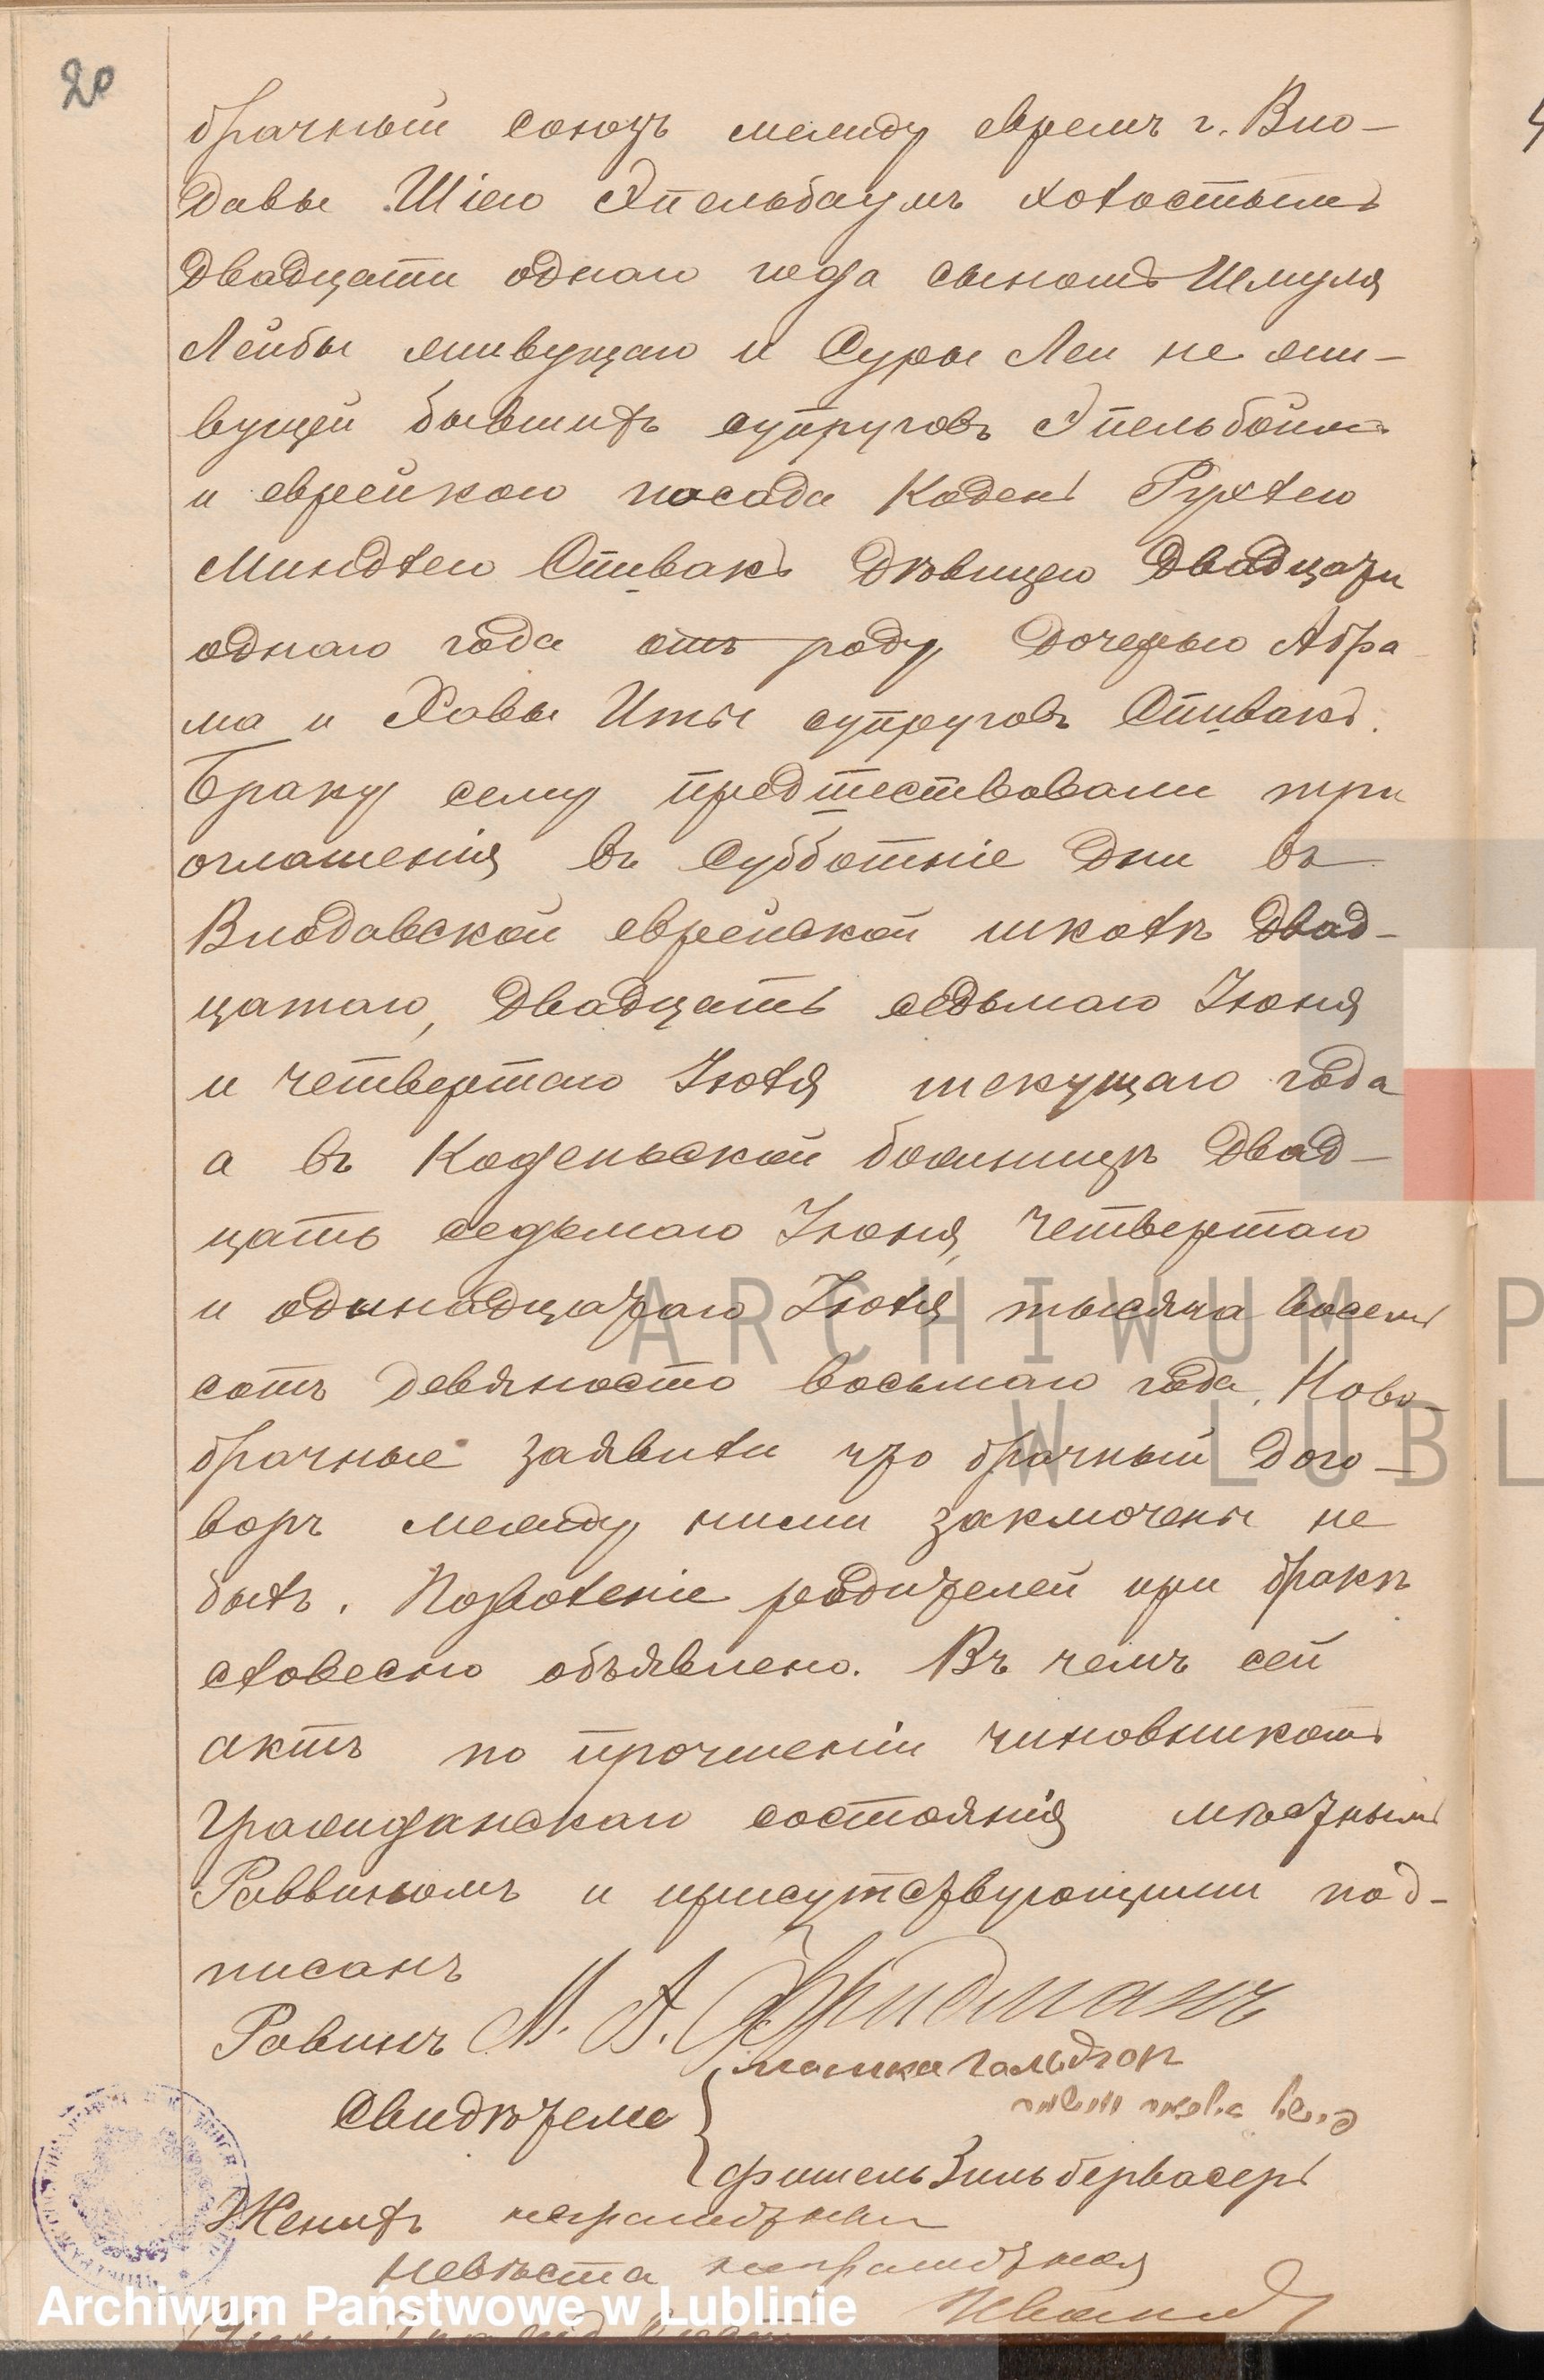 20
брачный союзъ между евреемъ г. Вло-
давы Шіею Эпельбаумъ холостымъ
двадцати однаго года сыномъ Шмуля
Лейбы живущаго и Суры Леи не жи-
вущей бывшихъ супруговъ Эпельбоймъ
и еврейкою посада Кодень Рухлею
Миндлею Спивакъ дѣвицею двадцати
однаго года отъ роду дочерью Абра-
ма и Хавы Иты супруговъ Спивакъ.
Браку сему предшествовали три
оглашенія въ Субботніе дни въ
Влодавской еврейской школѣ двад-
цатаго, двадцать седьмаго Іюня
и четвертаго Іюля текущаго года
а въ Коденьской божницѣ двад-
цать седьмаго Іюня, четвертаго
и одынадцатаго Іюля тысяча восемь
сотъ девяносто восьмаго года. Ново-
брачные заявили что брачный дого-
воръ между ними заключенъ не
былъ. Позволеніе родителей при бракѣ
словесно объявлено. Въ чемъ сей
актъ по прочтеніи чиновникомъ
гражданскаго состоянія мѣстнымъ
Раввиномъ и присутствующими под-
писанъ
Равинъ М. А. Фридманъ
Свидѣтели
фишель Зильбервасеръ
Женихъ неграмотный
Невѣста неграмотная
ARCHIWUM P
W LUBL
Archiwum Państwowe w Lublinie